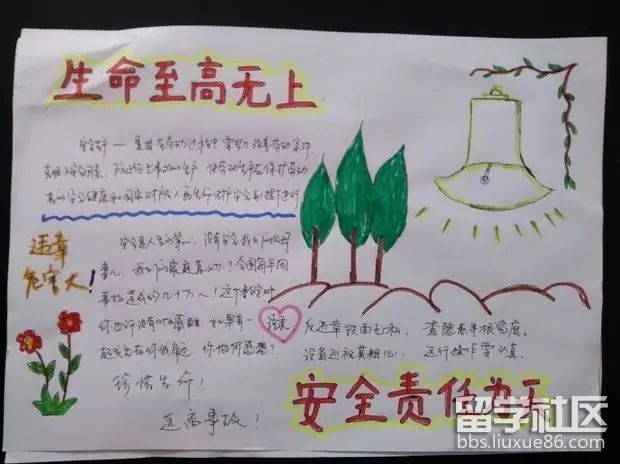 生命至高无上
安全生产——是指在劳动过程中要努力改善劳动条件,
克服不安全因素,防止伤亡事故的生产,使劳动生产在保护劳动
者的安全健康和国家财产及人民生命财产安全的前提下进行
违章
危害大!
安全是人生的第一,没有安全我们
我们的家庭
全国每年因
事故造成的
几十万人!这个数字对
你也许没有什么感触,如果有一
起发生在你身边,你也何感想?
珍惜生命!
远离事故!
反违章铁面无私,查隐患寻根究底。
设备巡视莫粗心,运行操作要认真。
安全责任为天
留学社区
bbs.liuxue86.com